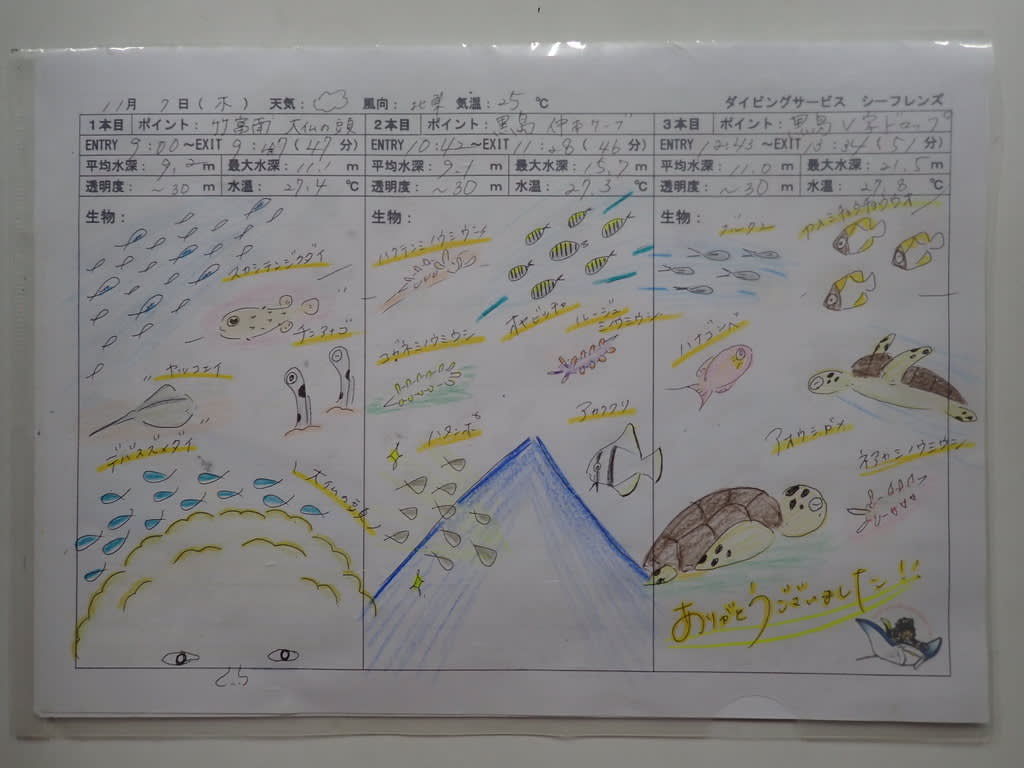 11月 7日(木) 天気: 風向: 北東 気温:25 ℃ ダイビングサービス シーフレンズ
1本目 ポイント: 竹富南 大仏の頭
ENTRY 9:00~EXIT 9:47(47分)
平均水深: 9.2m 最大水深: 11.1 m
透明度: ~30 m 水温: 27.4 ℃
生物:
スカシテンジクダイ
チンアナゴ
ヤッコエイ
デバスズメダイ
大仏の頭
2本目 ポイント: 黒島 仲本ケーブ
ENTRY 10:42~EXIT 11:28(46分)
平均水深: 9.1 m 最大水深: 15.7m
透明度: ~30 m 水温: 27.3 ℃
生物:
オヤビッチャ
コガネミノウミウシ
ハタンポ
アカククリ
3本目 ポイント: 黒島 V字ドロップ
ENTRY 12:43~EXIT 13:34(51分)
平均水深: 11.0 m 最大水深: 21.5m
透明度: ~30 m 水温: 27.8 ℃
生物:
グルクン
カスミチョウチョウウオ
ハナゴンベ
アオウミガメ
ネアカミノウミウシ
ありがとうございました!!